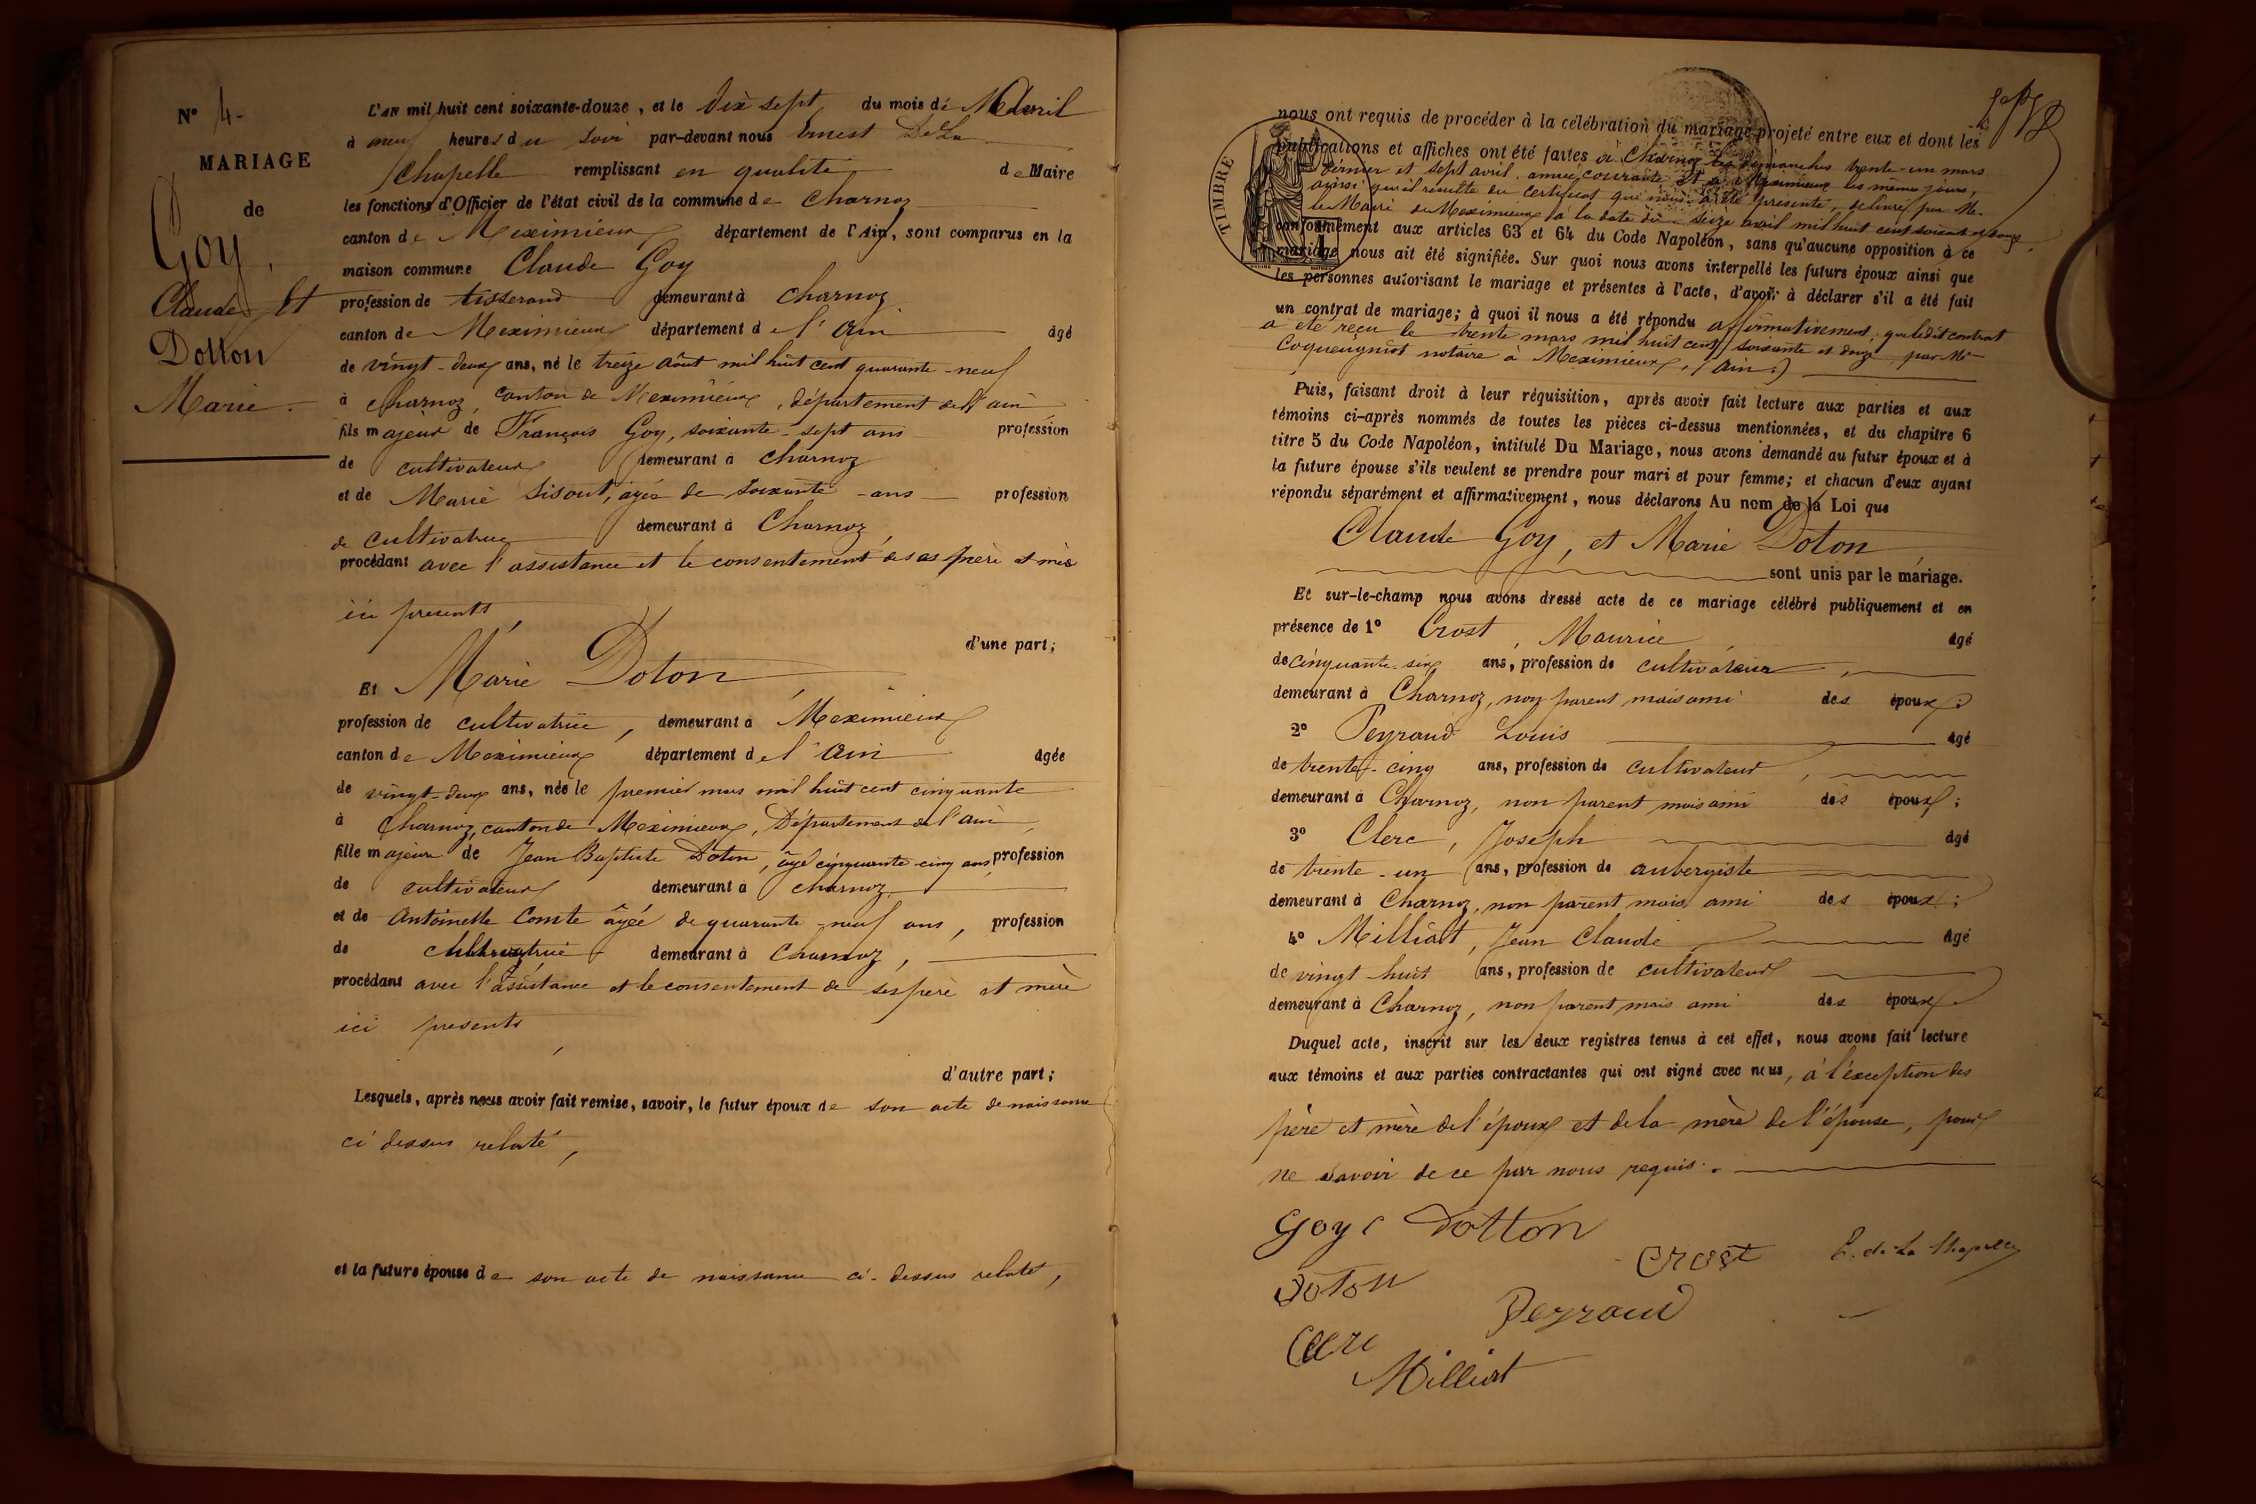 N° 4.
MARIAGE
de
Goy,
Claude Et
Dotton
Marie.
L'AN mil huit cent soixante-douze, et le dix sept du mois de Avril
à neuf heures du soir par-devant nous Ernest De La
Chapelle remplissant en qualité de Maire
les fonctions d'Officier de l'état civil de la commune de Charnoz
canton de Meximieux département de l'Ain, sont comparus en la
maison commune Claude Goy
profession de tisserand demeurant à Charnoz
canton de Meximieux département de l'Ain âgé
de vingt-deux ans, né le treize août mil huit cent quarante-neuf
à Charnoz, canton de Meximieux, département de l'ain
fils majeur de François Goy, soixante-sept ans profession
de cultivateur demeurant à Charnoz
et de Marie Sisout, âgée de soixante ans profession
de cultivatrice demeurant à Charnoz,
procédant avec l'assistance et le consentement de ses père et mère
ici presents,
d'une part;
Et Marie Doton
profession de cultivatrice, demeurant à Meximieux
canton de Meximieux département de l'Ain âgée
de vingt-deux ans, née le premier mars mil huit cent cinquante
à Charnoz, canton de Meximieux, Département de l'ain,
fille majeure de Jean Baptiste Doton, âgé cinquante-cinq ans, profession
de cultivateur demeurant à Charnoz
et de Antoinette Comte âgée de quarante-neuf ans, profession
de cultivatrice demeurant à Charnoz,
procédant avec l'assistance et le consentement de ses père et mère
ici presents,
d'autre part;
Lesquels, après nous avoir fait remise, savoir, le futur époux de son acte de naissance
ci dessus relaté,
et la future épouse de son acte de naissance ci-dessus relaté,
nous ont requis de procéder à la célébration du mariage projeté entre eux et dont les
publications et affiches ont été faites à Charnoz les dimanches trente-un mars
dernier et sept avril année courante et à Meximieux les mêmes jours,
ainsi qu'il résulte du certificat qui nous a été présenté, délivré par M.
le Maire de Meximieux à la date du seize avril mil huit cent soixante et douze,
conformément aux articles 63 et 64 du Code Napoléon, sans qu'aucune opposition à ce
mariage nous ait été signifiée. Sur quoi nous avons interpellé les futurs époux ainsi que
les personnes autorisant le mariage et présentes à l'acte, d'avoir à déclarer s'il a été fait
un contrat de mariage; à quoi il nous a été répondu affirmativement, que ledit contrat
a été reçu le trente mars mil huit cent soixante et douze par Me
Coqueugniot notaire à Meximieux, (Ain.)
TIMBRE
Puis, faisant droit à leur réquisition, après avoir fait lecture aux parties et aux
témoins ci-après nommés de toutes les pièces ci-dessus mentionnées, et du chapitre 6
titre 5 du Code Napoléon, intitulé Du Mariage, nous avons demandé au futur époux et à
la future épouse s'ils veulent se prendre pour mari et pour femme; et chacun d'eux ayant
répondu séparément et affirmativement, nous déclarons Au nom de la Loi que
Claude Goy, et Marie Doton
sont unis par le mariage.
Et sur-le-champ nous avons dressé acte de ce mariage célébré publiquement et en
présence de 1° Crost, Maurice âgé
de cinquante-six ans, profession de cultivateur,
demeurant à Charnoz, non parent mais ami des époux;
2° Peyraud Louis âgé
de trente-cinq ans, profession de cultivateur,
demeurant à Charnoz, non parent mais ami des époux;
3° Clerc, Joseph âgé
de trente-un ans, profession de aubergiste
demeurant à Charnoz, non parent mais ami des époux;
4° Milliat, Jean Claude âgé
de vingt-huit ans, profession de cultivateur
demeurant à Charnoz, non parent mais ami des époux.
Duquel acte, inscrit sur les deux registres tenus à cet effet, nous avons fait lecture
aux témoins et aux parties contractantes qui ont signé avec nous, à l'éxception des
père et mère de l'époux et de la mère de l'épouse, pour
ne savoir de ce par nous requis.
Goy C Dotton
Crost E. de La Chapelle
Doton
Peyraud
Clerc
Milliat